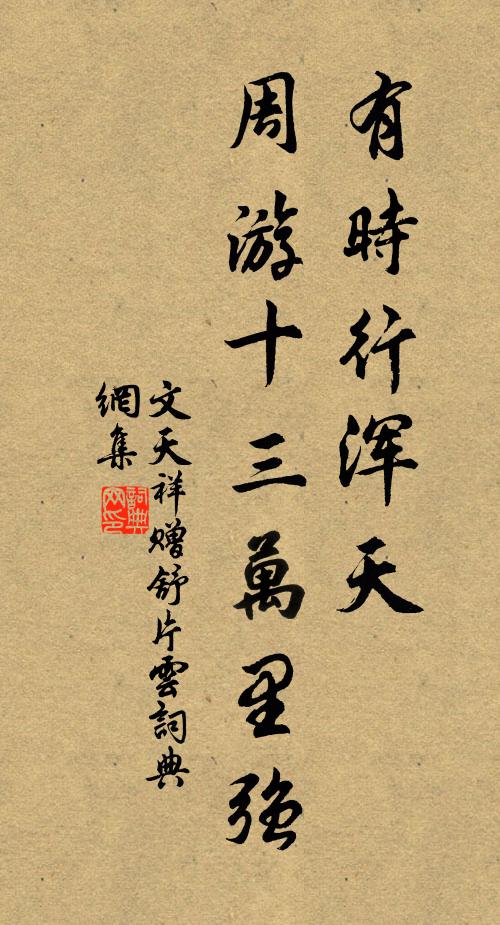 有時行浑天
周游十三萬里强
文天祥赠舒片雲詞典
網集
詞典
网印